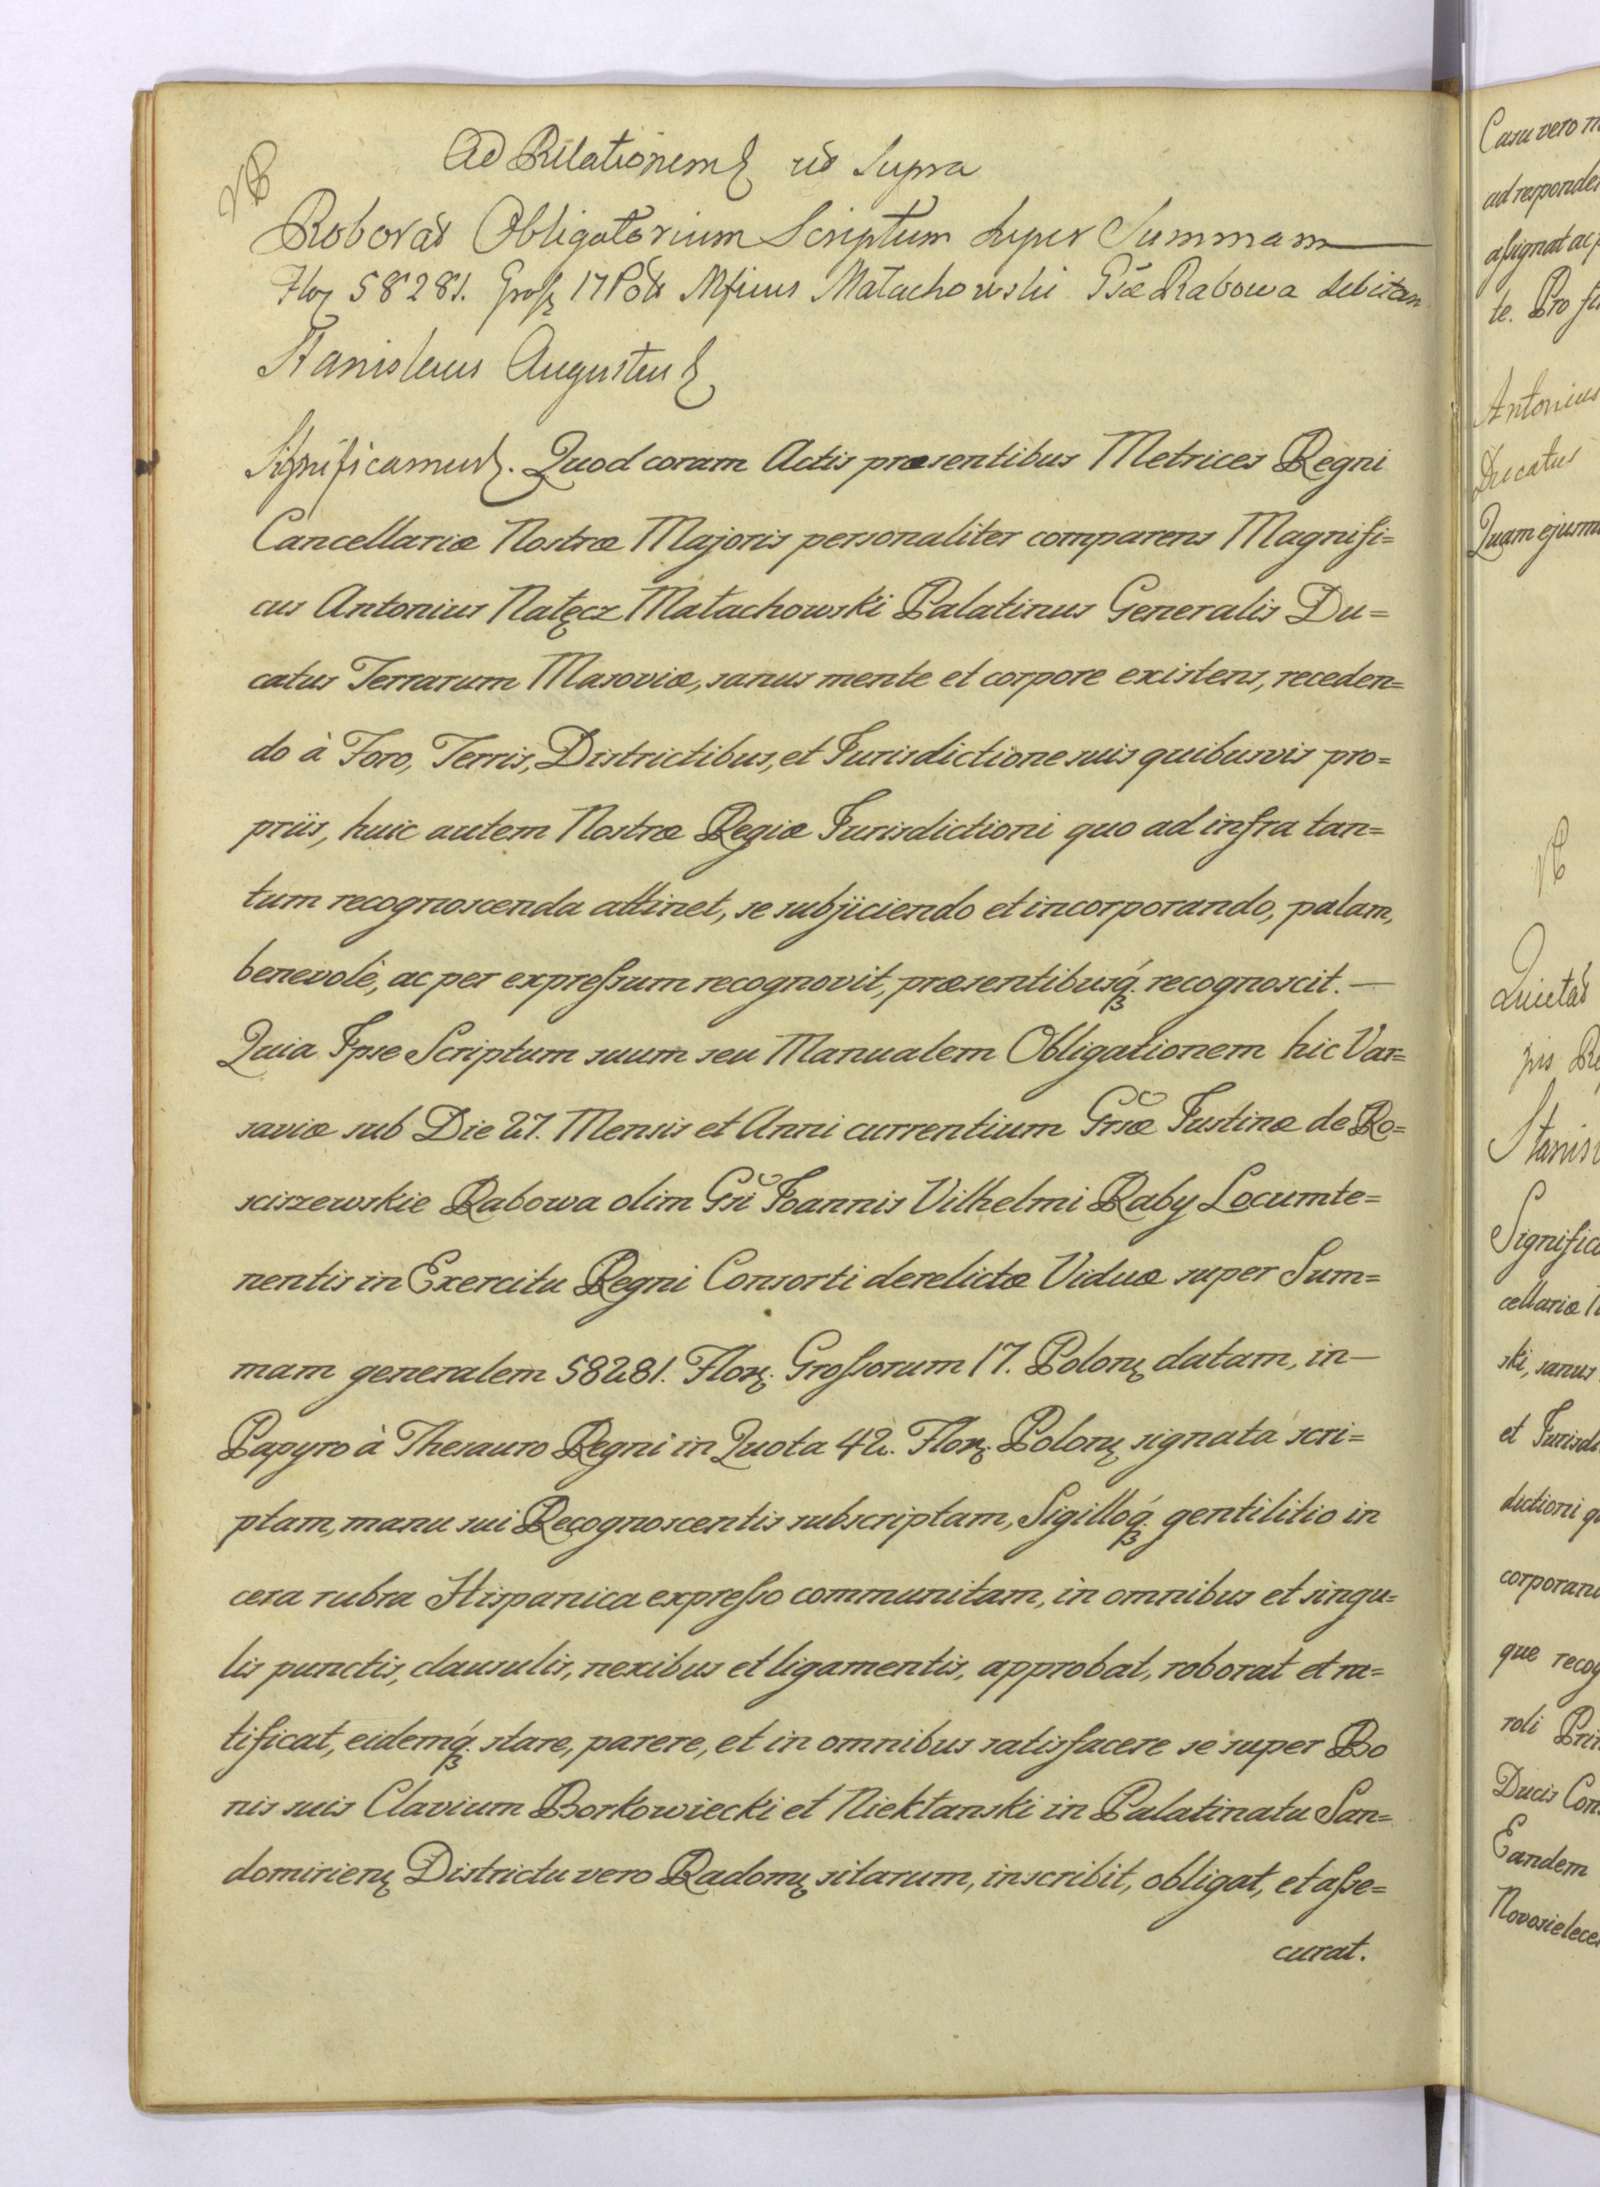 Ad Relationem ut Supra
Roborat Obligatorium Scriptum super Summam
Flor 58281. Gross 17 Pol Mficus Małachowski Gsæ Rabowa debitam
Stanislaus Augustus
Significamus. Quod coram Actis præsentibus Metrices Regni
Cancellariæ Nostræ Majoris personaliter comparens Magnifi=
cus Antonius Nałęcz Małachowski Palatinus Generalis Du=
catus Terrarum Masoviæ, sanus mente et corpore existens, receden=
do à Foro, Terris, Districtibus, et Jurisdictione suis quibusvis pro=
priis, huic autem Nostræ Regiæ Jurisdictioni quo ad infra tan=
tum recognoscenda attinet, se subjiciendo et incorporando, palam,
benevolè, ac per expreſsum recognovit, præsentibusq́. recognoscit. —
Quia Ipse Scriptum suum seu Manualem Obligationem hic Var=
saviæ sub Die 27. Mensis et Anni currentium Grsæ Justinæ de Ro=
sciszewskie Rabowa olim Gsi Joannis Vilhelmi Raby Locumte=
nentis in Exercitu Regni Consorti derelictæ Viduæ super Sum=
mam generalem 58281. Flor. Groſsorum 17. Polon datam, in—
Papyro à Thesauro Regni in Quota 42. Flor. Polon signata scri=
ptam, manu sui Recognoscentis subscriptam, Sigilloq́. gentilitio in
cera rubra Hispanica expreſso communitam, in omnibus et singu=
lis punctis, clausulis, nexibus et ligamentis, approbat, roborat et ra=
tificat, eidemq́. stare, parere, et in omnibus satisfacere se super Bo
nis suis Clavium Borkowiecki et Niekłanski in Palatinatu San=
domirien Districtu vero Radom sitarum, inscribit, obligat, et aſse=
curat.
Casu vero
ad responde
aſsignat ac
te. Pro
Antonius
Ducatus
Quam ejusm
Quietat
Stanis
Signific
cellariæ
ski, sanus
et Jurisd
dictioni
corporan
que recog
roli Prin
Ducis Con
Eandem
Novosielec